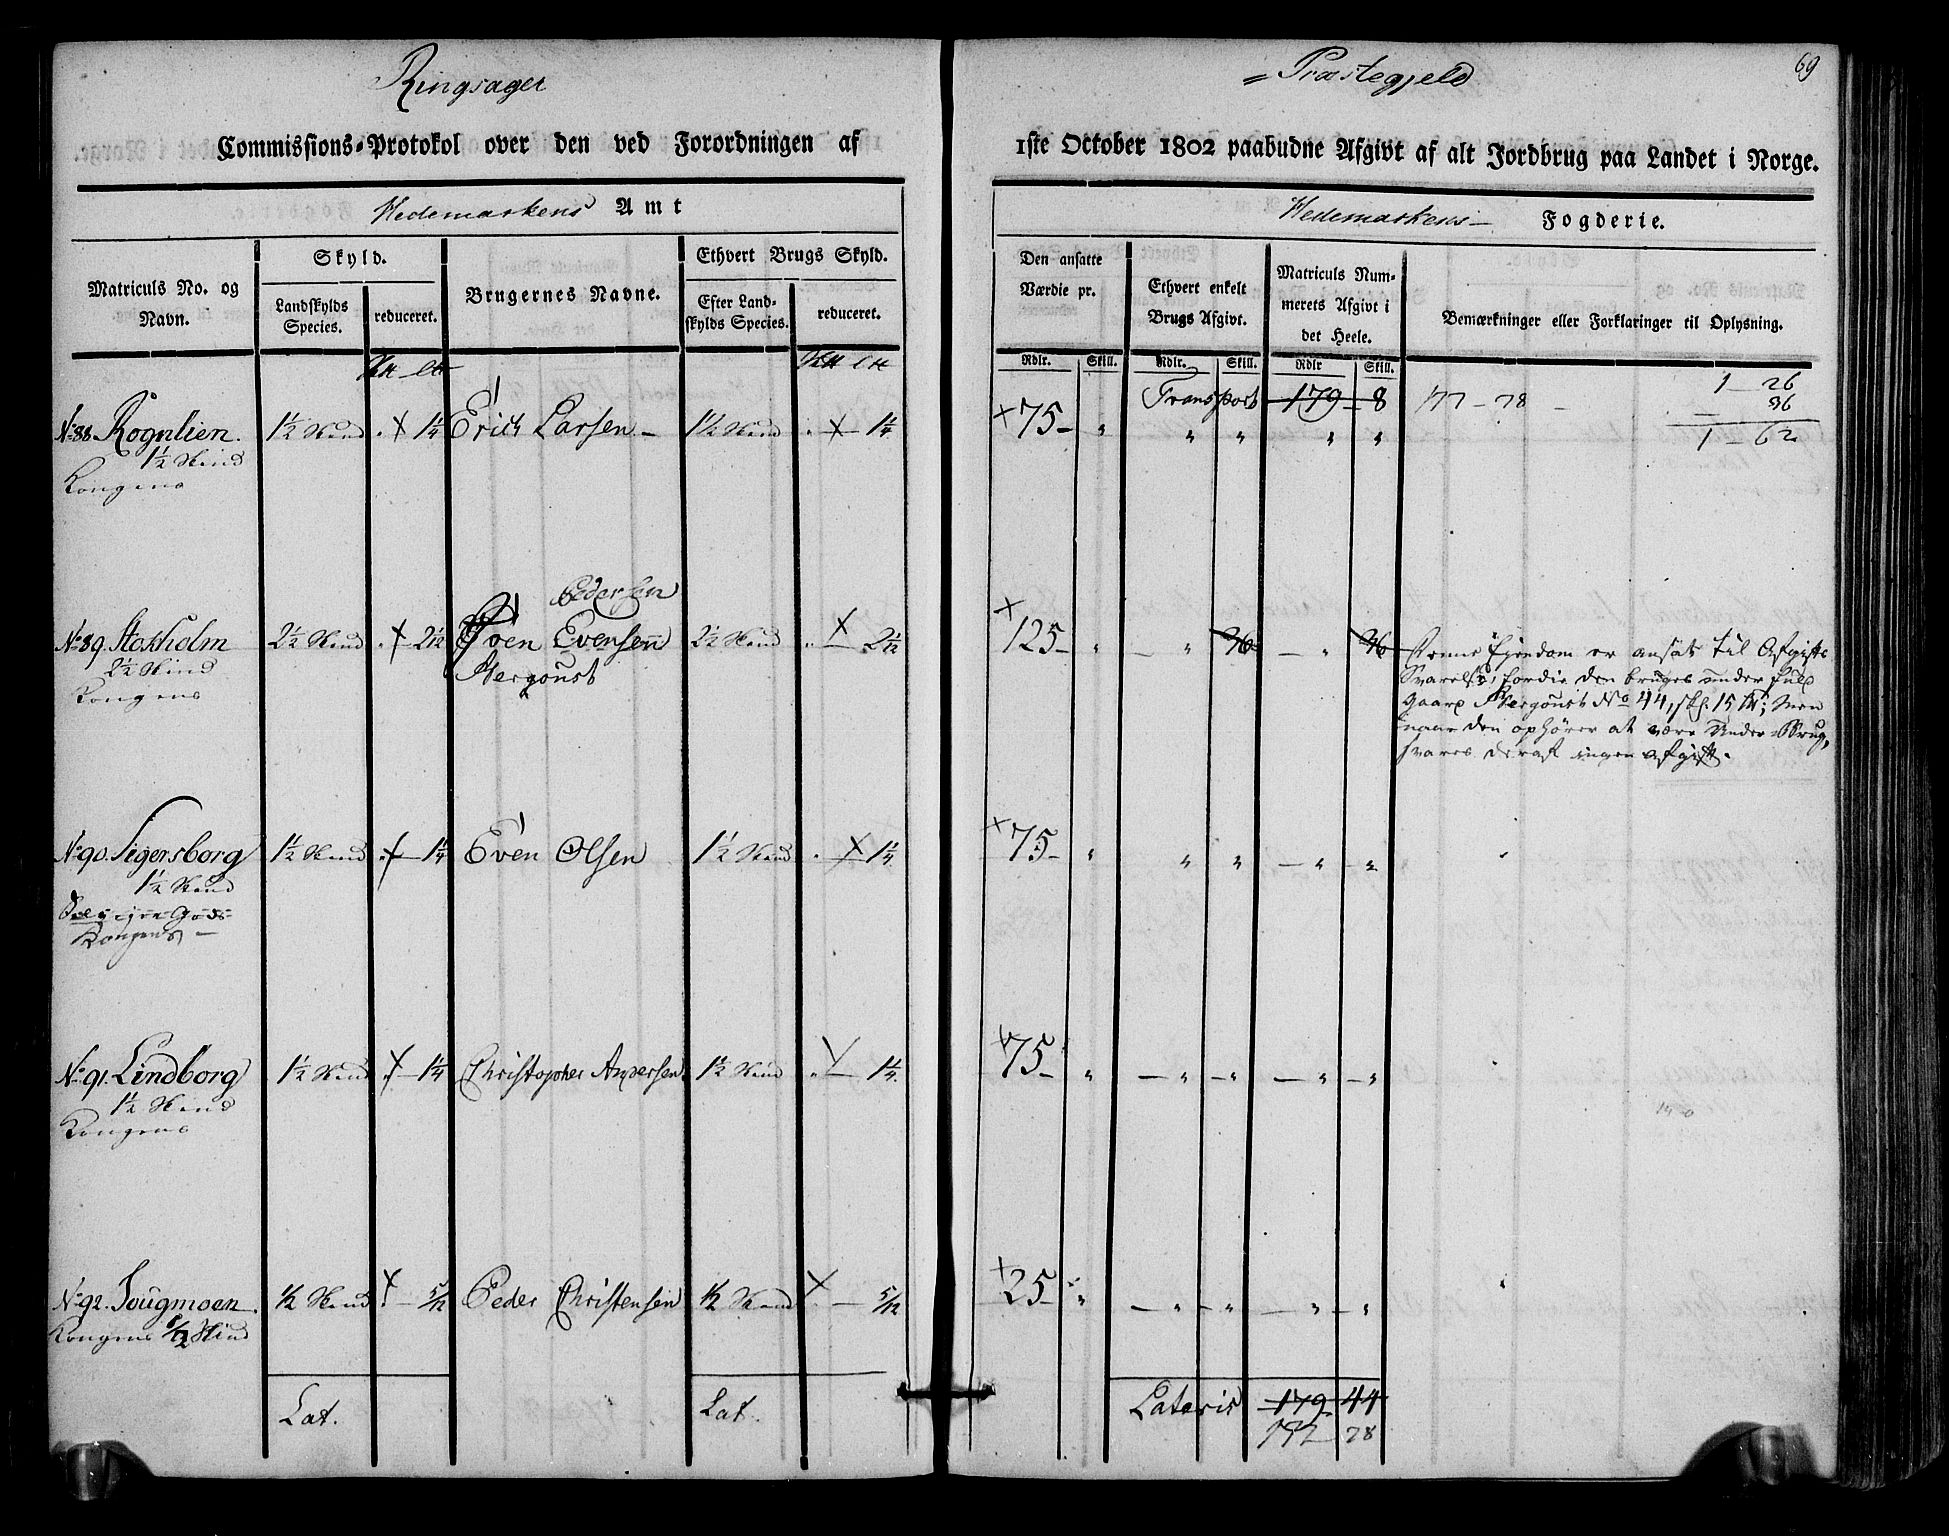 Ringsager
= Præstegjeld
69
Commissions-Protokol over den ved Forordningen af
1ste October 1802 paabudne Afgivt af alt Jordbrug paa Landet i Norge.
Hedemarkens Amt
Hedemarkens Fogderie.
Matriculs No. og Navn.
Skyld.
Landskylds Species.
reduceret.
Brugernes Navne.
Ethvert Brugs Skyld.
Efter Landskylds Species.
reduceret.
Den ansatte Værdie pr.
Rdlr. Skill.
Ethvert enkelt Brugs Afgivt.
Rdlr. Skill.
Matriculs Nummerets Afgivt i det Heele.
Rdlr Skill.
Bemærkninger eller Forklaringer til Oplysning.
Transport 179 - 8 177 - 78 -
1 - 26
36
1 - 62
No 88 Rognlien. 1½ Skind " 1¼ Erich Larsen - 1½ Skind " - 1¼ 75 - " " " " "
1½ Skind
Kongens
Pedersen
No 89 Stokholm 2½ Skind " 2 1/12 Even Evensen 2½ Skind " - 2 1/12 125 - " - " 36 - " 36
2½ Skind
Hergoust
Kongens
Denne Ejendom er ansat til Afgifts
Svarelse, fordie den bruges under fuld
Gaard Hergoust No 44, Skl. 15 ; Men
naar den ophører at være Under-Brug,
svares deraf ingen Afgift.
No 90. Sigersborg 1½ Skind " - 1¼ Even Olsen 1½ Skind " 1¼ 75 - " " " - " - "
1½ Skind
Gods
Kongens -
No 91. Lindborg 1½ Skind " - 1¼ Christopher Andersen 1½ Skind " - 1¼ 75 - " - " - " - " - "
1½ Skind
Kongens
No 92. Sougmoen. ½ Skind " - 5/12 Peder Christensen ½ Skind " - 5/12 25 - " - " - " - " - "
Kongens ½ Skind
Lat. Lat.
Lateris 179 44
177 78